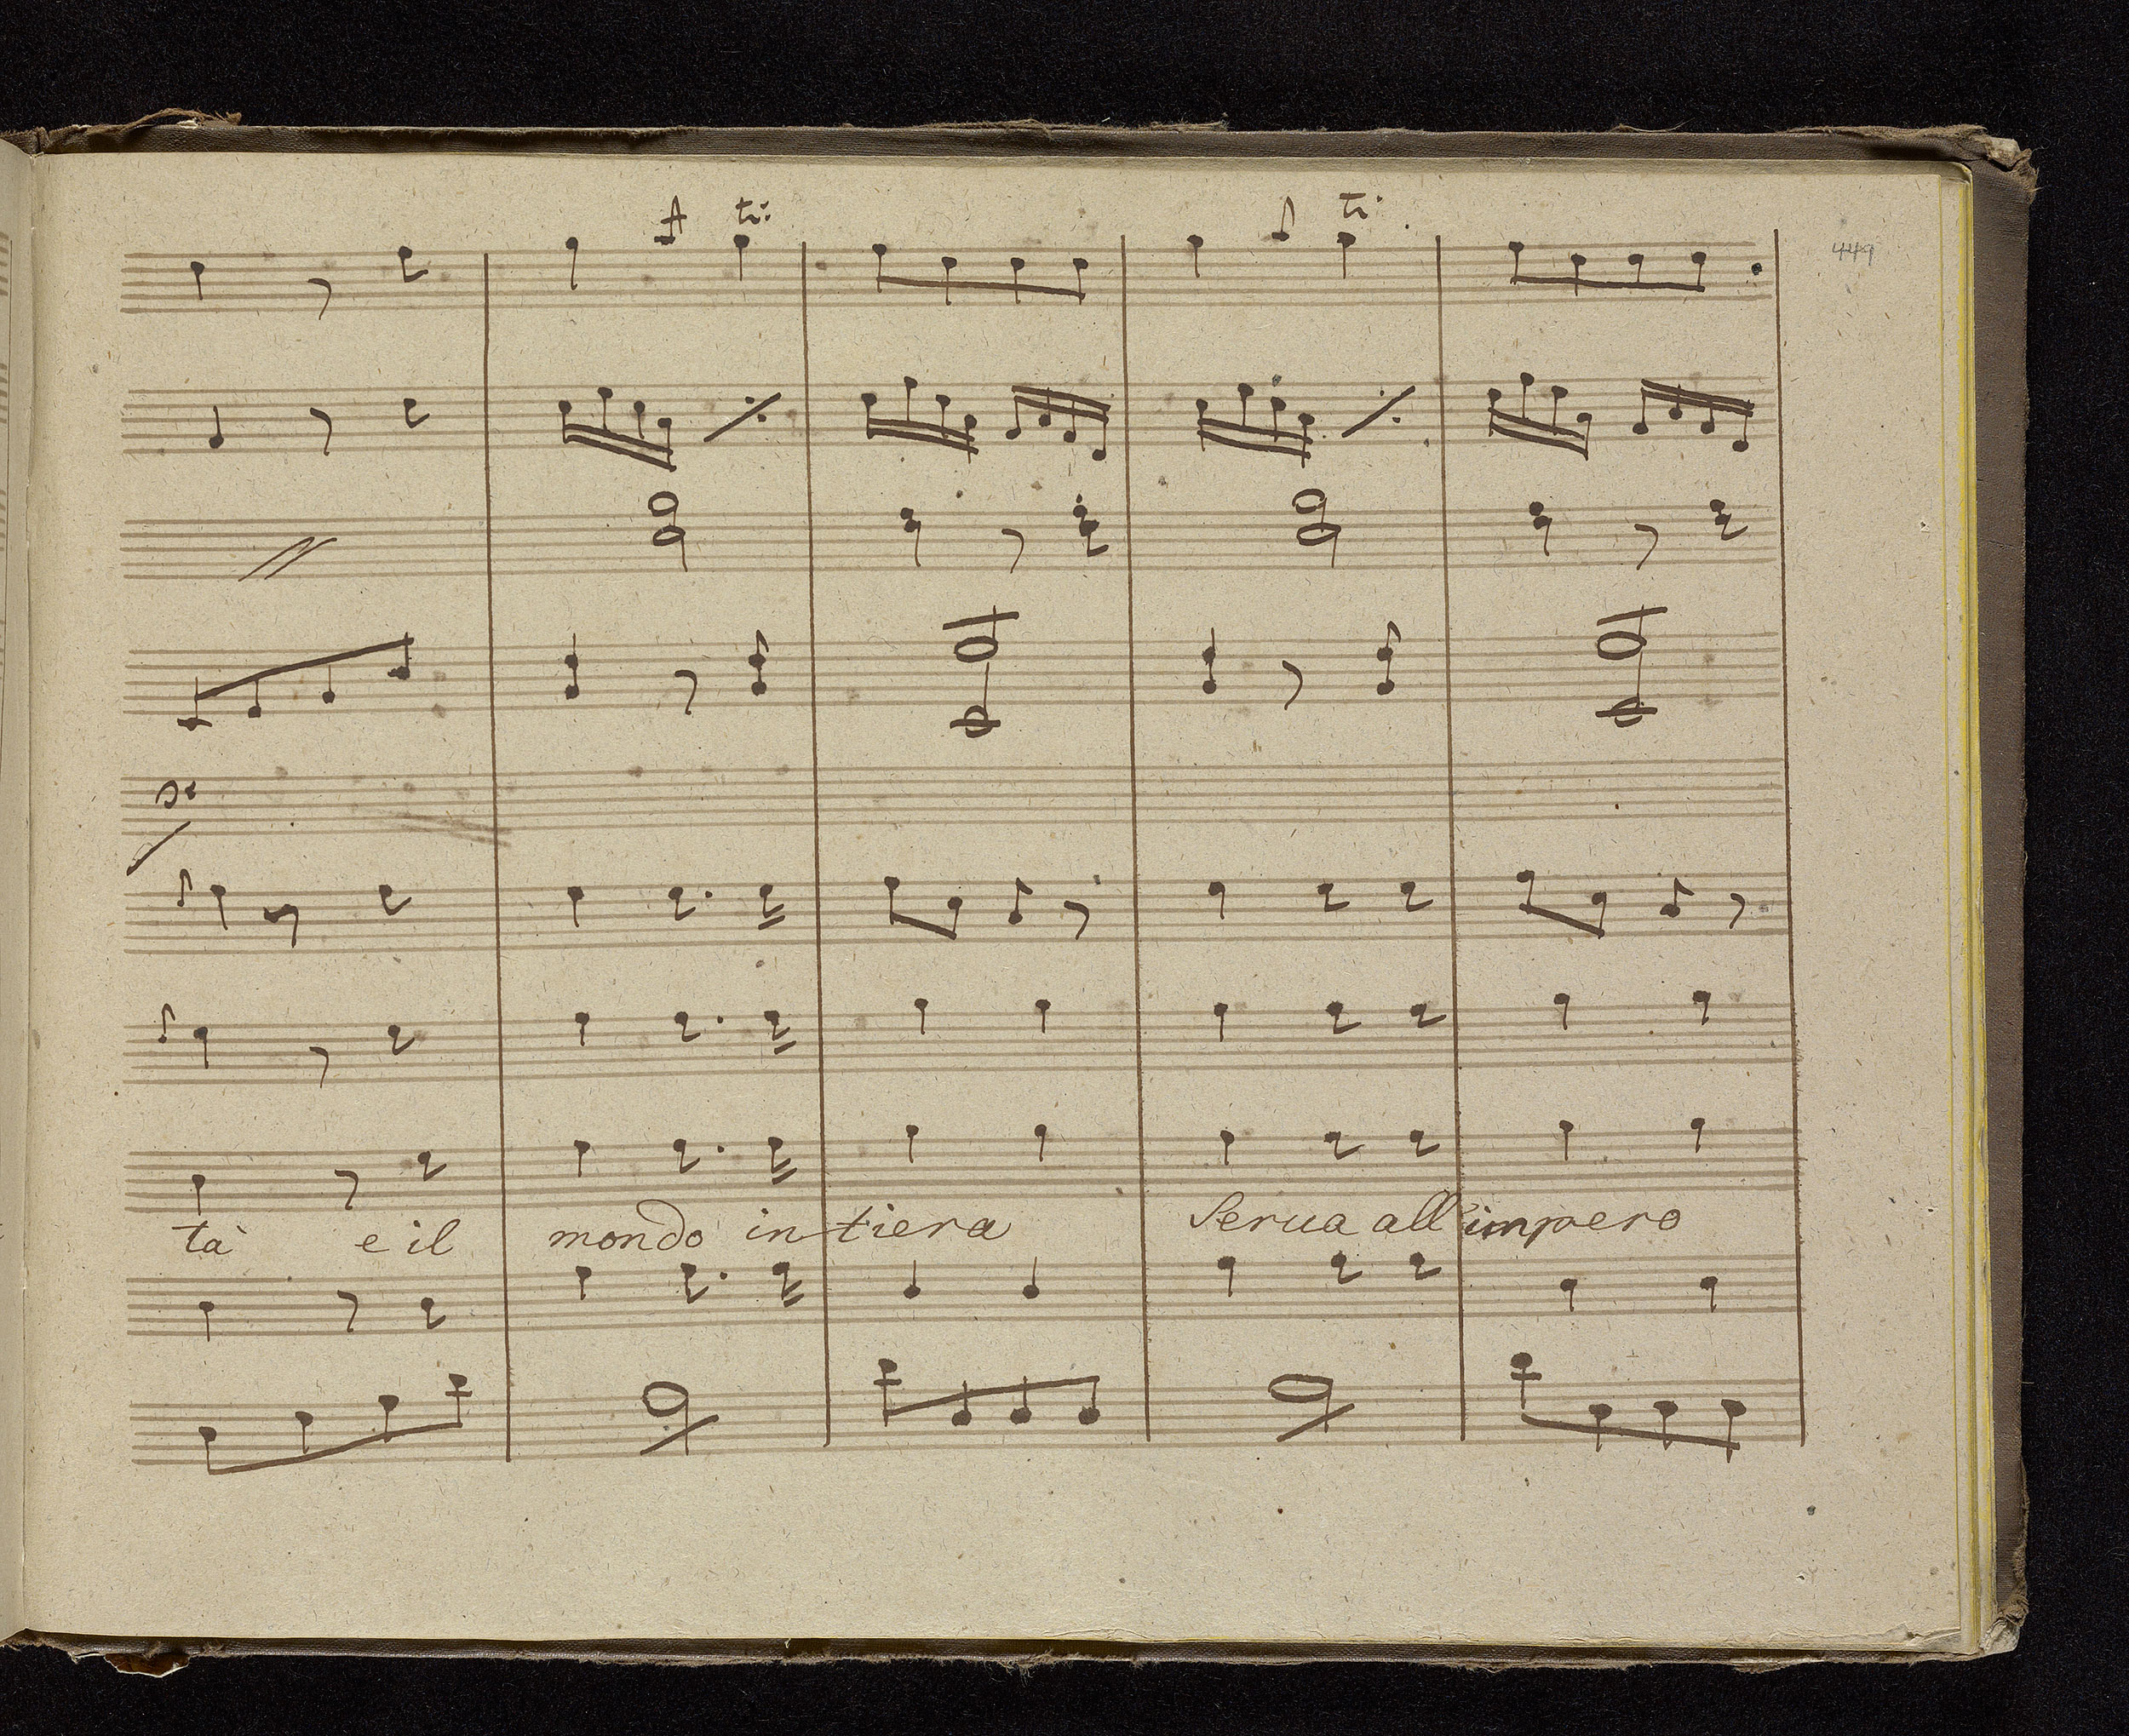 tr: tr.
449
tà e il mondo intiera Serua all' impero